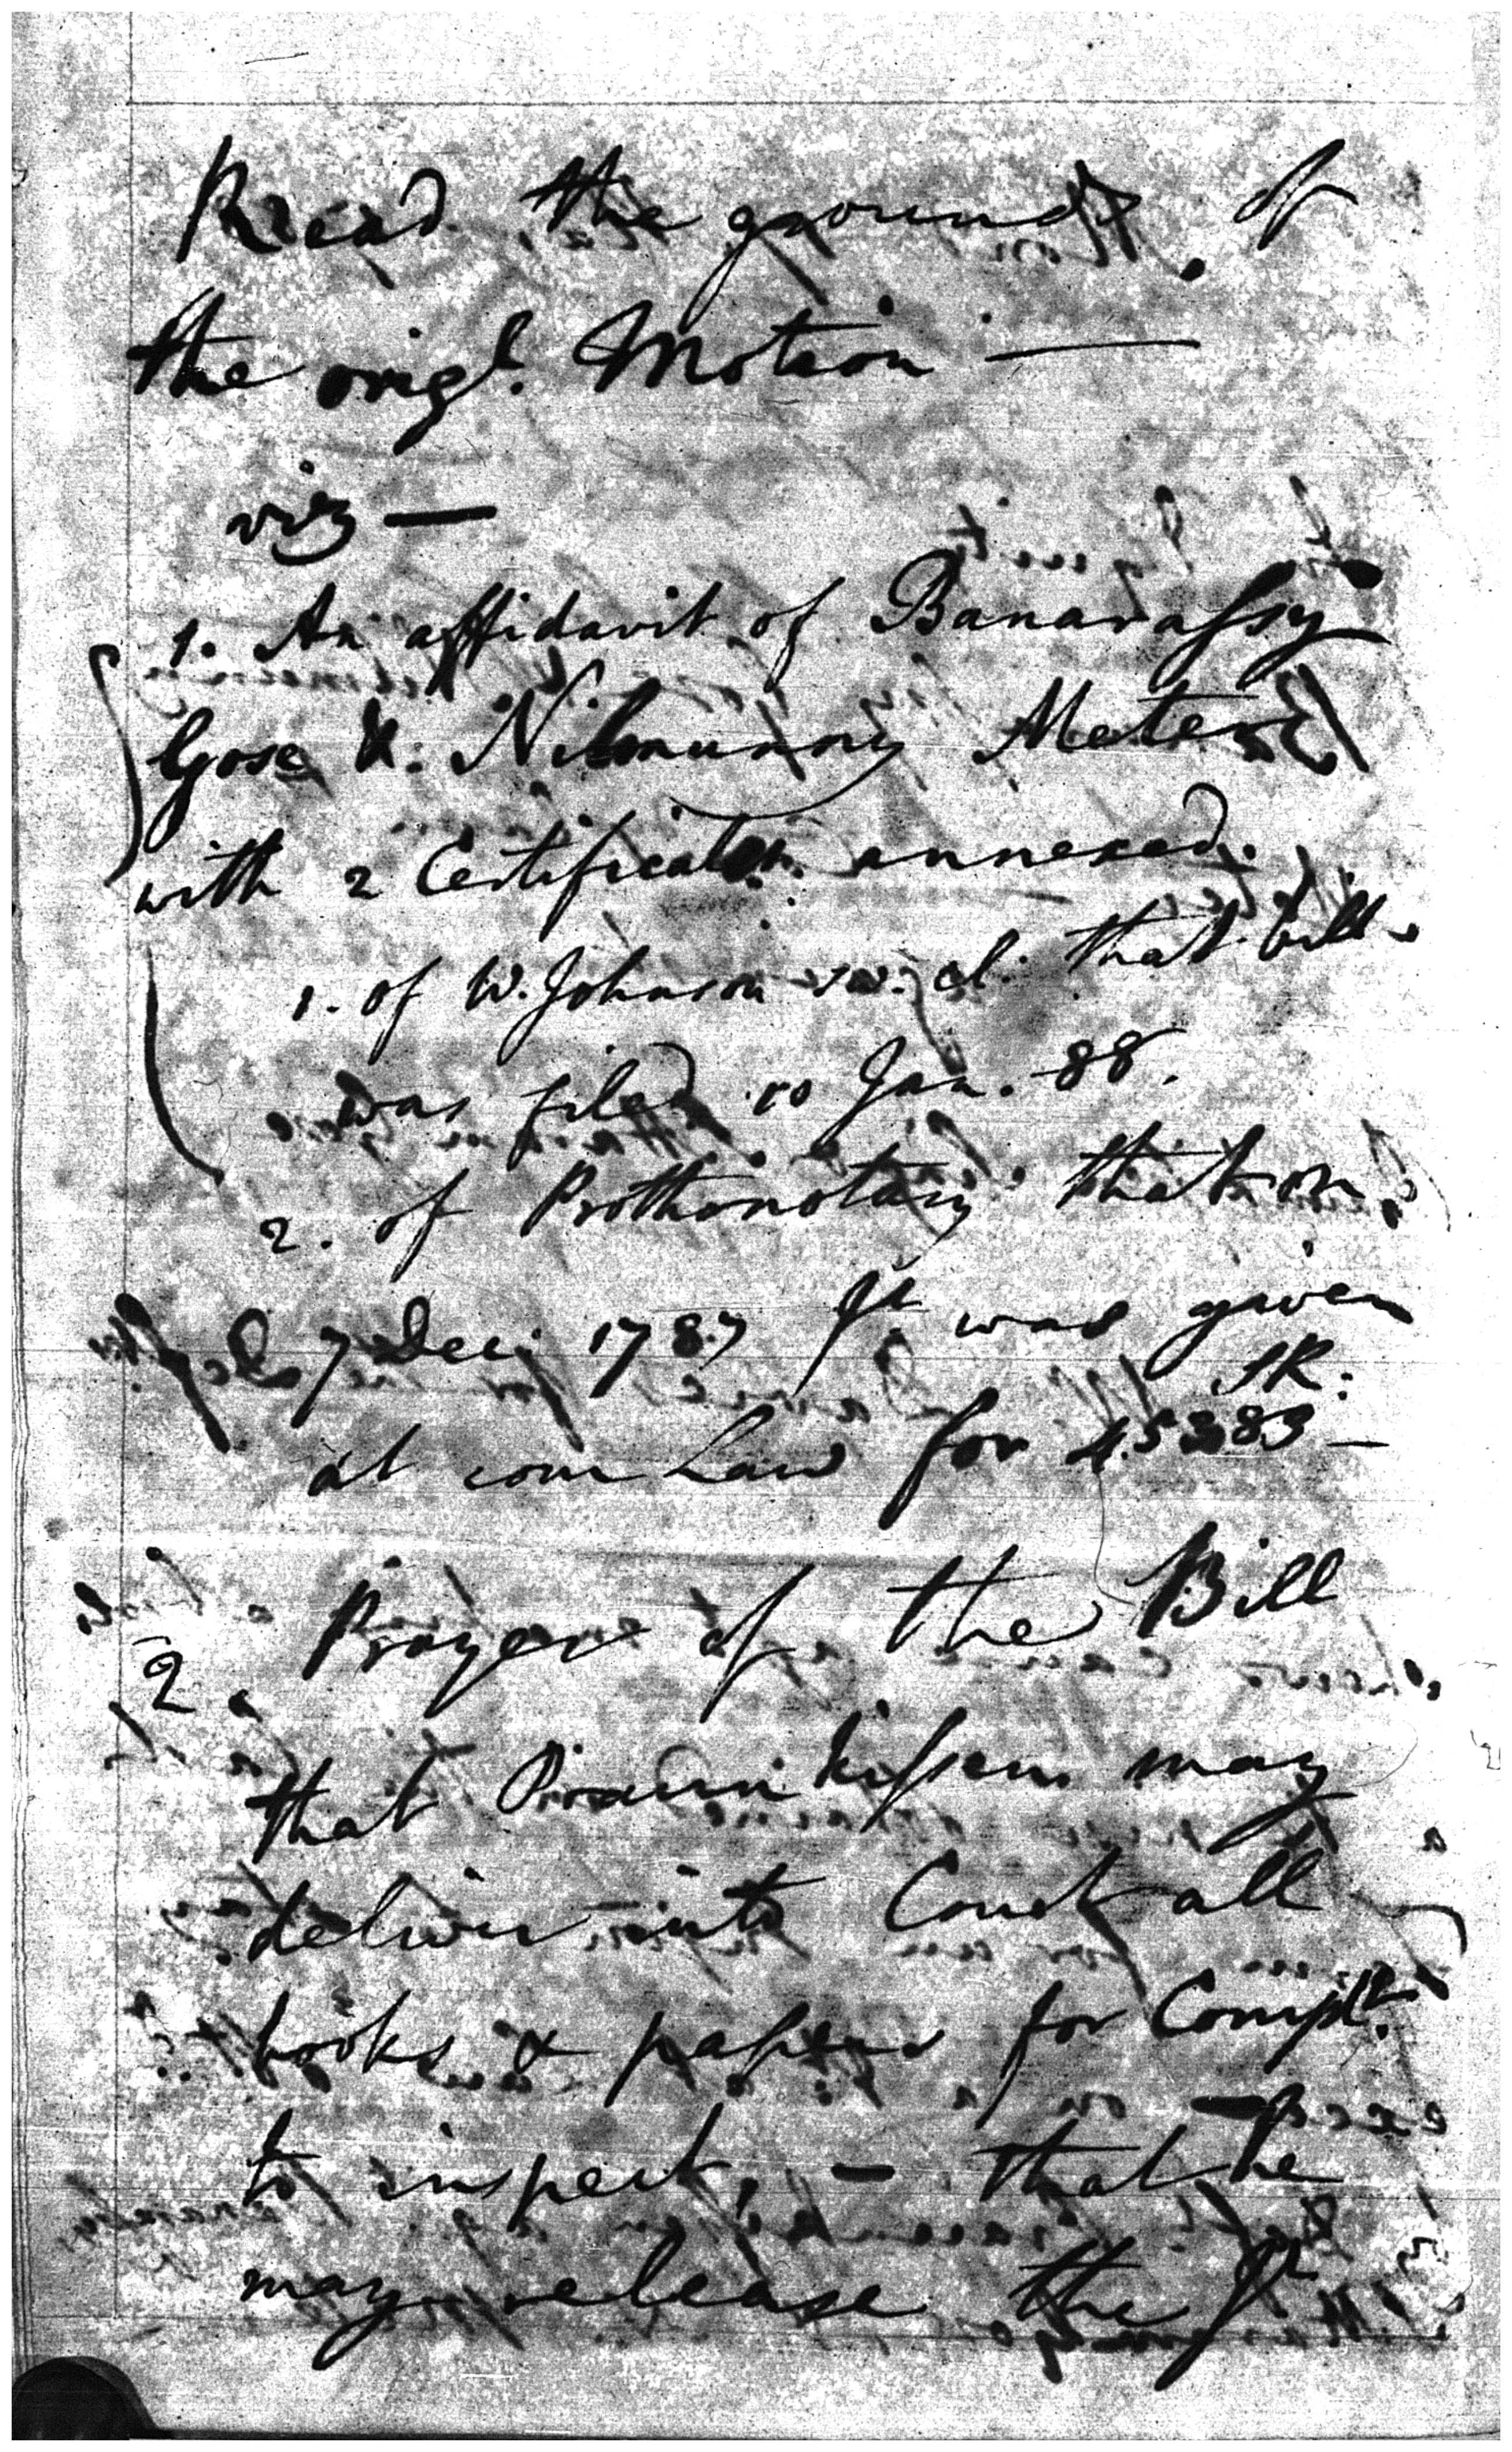 Read the grounds of
the origl. Motion —
viz —
1. An affidavit of Banarassy
Gose &: Nilmunny Meter
with 2 Certificates annexed.
1. of W. Johnson sw. cl. that bill
was filed 10 Jan. 88.
2. of Prothonotary that on
7 Decr 1787 Jt. was given
at com Law for SR: 45383 —
2. Prayer of the Bill
that Praunkissen may
deliver into Court all
books & papers for Complt.
to inspect, — that he
may release the Jt